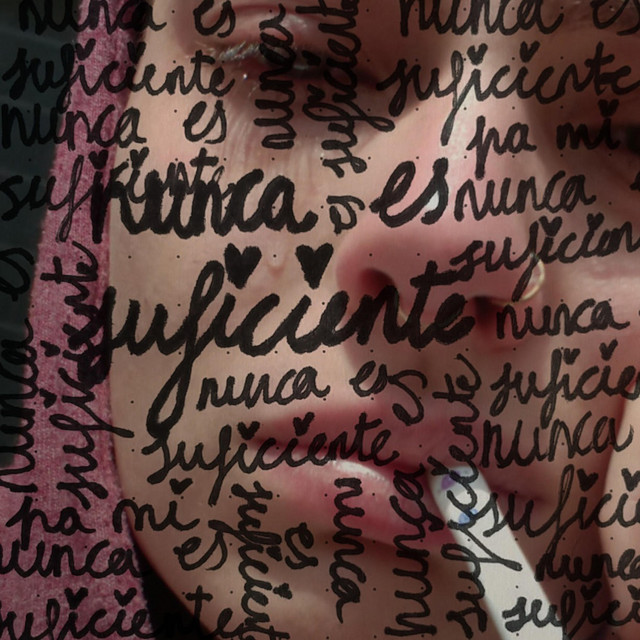 nunca es
nunca es
suficiente
suficiente
nunca es
pa mi
nunca es
nunca
suficiente
nunca
nunca es
suficiente
nunca
suficiente
pa mi
es
nunca
suficiente
nunca
suficiente
nunca
suficiente
nunca
es
suficiente
nunca
suficiente